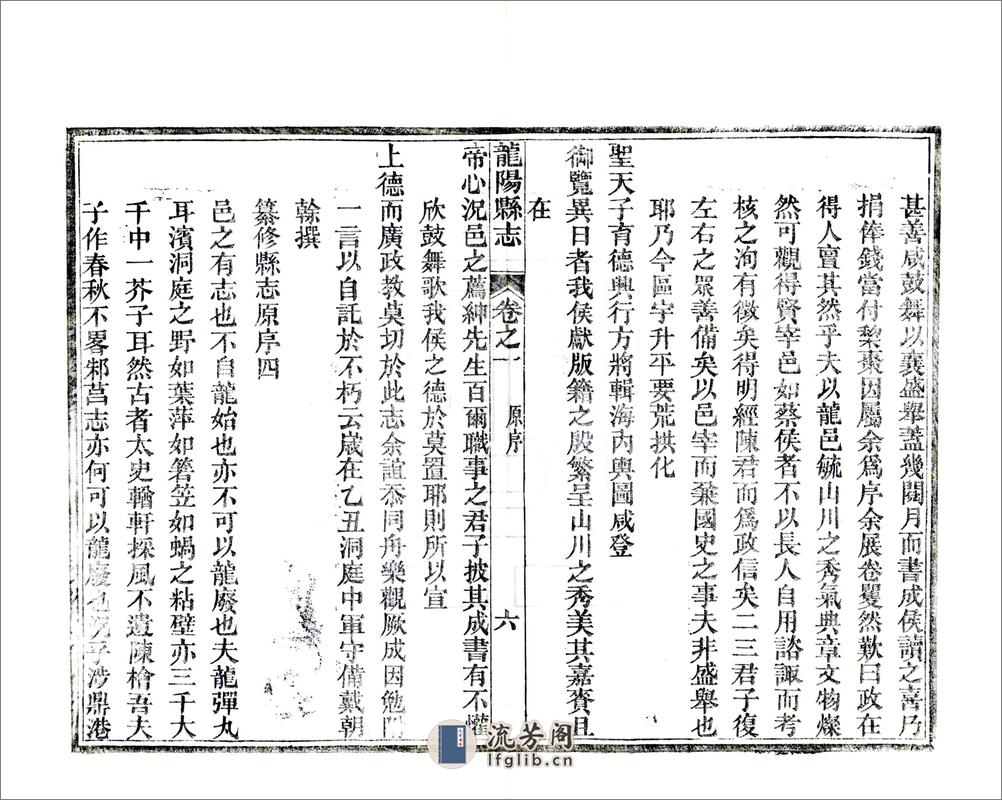 甚善咸鼓舞以襄盛舉蓋幾閱月而書成侯讀之喜乃
捐俸錢當付黎棗因屬余爲序余展卷矍然歎曰政在
得人亶其然乎夫以龍邑毓山川之秀氣典章文物燦
然可觀得賢宰邑如蔡侯者不以長人自用諮諏而考
核之洵有徵矣得明經陳君而爲政信矣二三君子復
左右之眾善備矣以邑宰而兼國史之事夫非盛舉也
耶乃今區宇升平要荒拱化
聖天子育德興行方將輯海內輿圖咸登
御覽異日者我侯獻版籍之殷繁呈山川之秀美其嘉賚且
在
龍陽縣志 卷之一 原序 六
帝心況邑之薦紳先生百爾職事之君子披其成書有不懽
欣鼓舞歌我侯之德於莫置耶則所以宣
上德而廣政教莫切於此志余誼忝同舟樂觀厥成因勉
一言以自託於不朽云歲在乙丑洞庭中軍守備戴朝
榦撰
纂修縣志原序四
邑之有志也不自龍始也亦不可以龍廢也夫龍彈丸
耳濱洞庭之野如葉萍如箬笠如蝸之粘壁亦三千大
千中一芥子耳然古者太史輶軒採風不遺陳檜吾夫
子作春秋不畧邾莒志亦何可以龍廢也況乎涉鼎港
流芳阁
lfglib.cn